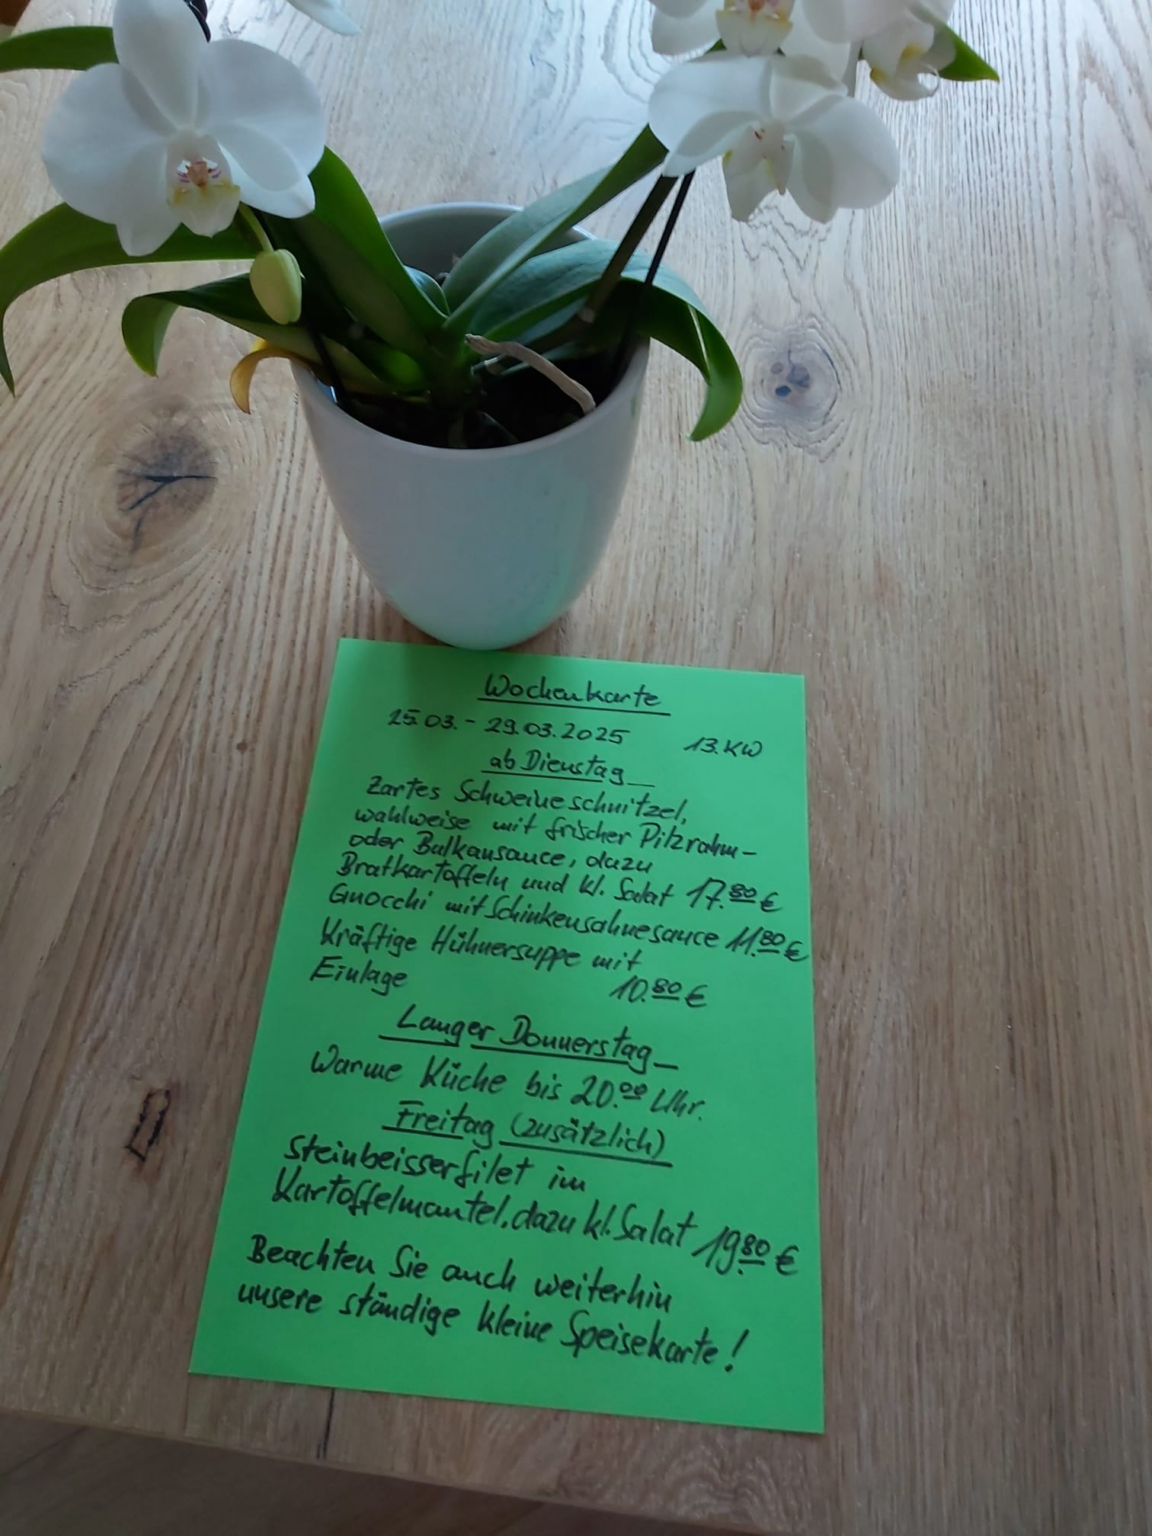 Wochenkarte
25.03. - 29.03.2025 13.KW
ab Dienstag
Zartes Schweineschnitzel,
wahlweise mit frischer Pilzrahm-
oder Balkansauce, dazu
Bratkartoffeln und kl. Salat 17.80 €
Gnocchi mit Schinkensahnesauce 11.80 €
Kräftige Hühnersuppe mit
Einlage 10.80 €
Langer Donnerstag
Warme Küche bis 20.00 Uhr.
Freitag (zusätzlich)
Steinbeisserfilet im
Kartoffelmantel, dazu kl. Salat 19.80 €
Beachten Sie auch weiterhin
unsere ständige kleine Speisekarte!